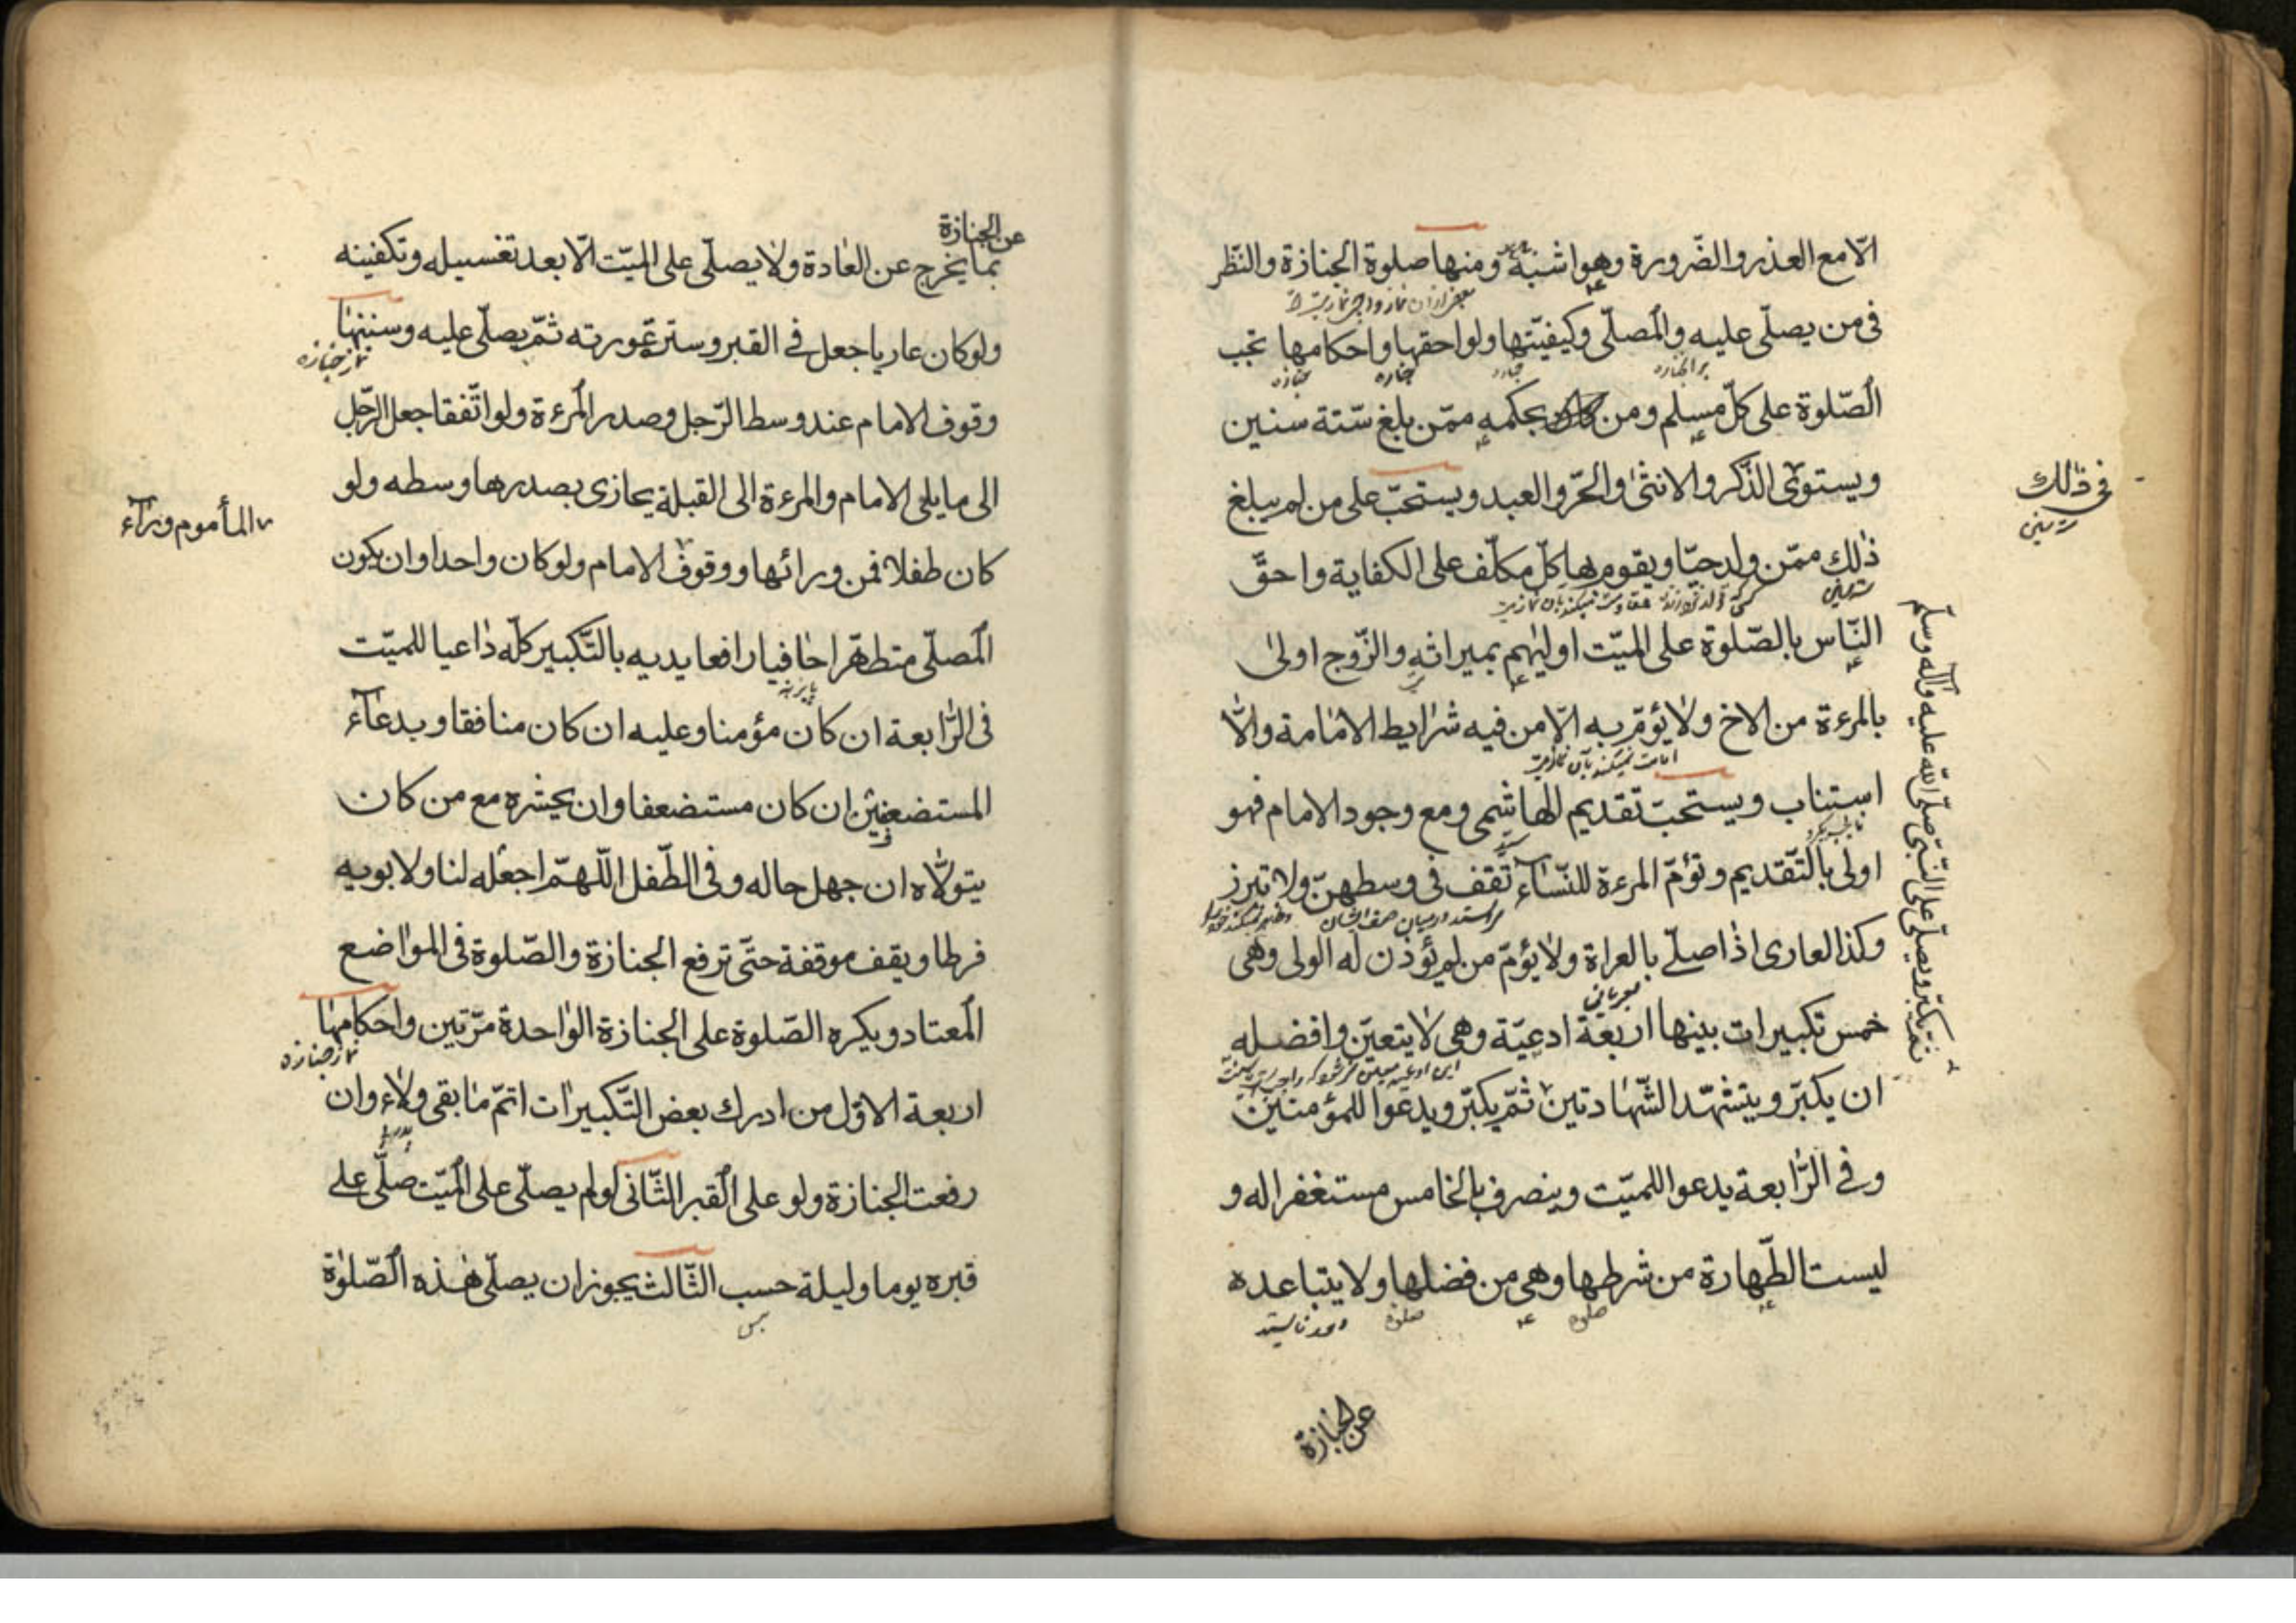 الّا مع العذر والضّرورة وهو اشبه ومنها صلوة الجنازة والنّظر
فى من يصلّى عليه والمصلّى وكيفيّتها ولواحقها واحكامها تجب
الصّلوة على كلّ مسلم ومن كان بحكمه ممّن بلغ ستّة سنين
ويستوى الذّكر والانثى والحرّ والعبد ويستحبّ على من لم يبلغ
ذلك ممّن ولد حيّا ويقوم بها كلّ مكلّف على الكفاية واحقّ
النّاس بالصّلوة على الميّت اوليهم بميراثه والزّوج اولى
بالمرءة من الاخ ولا يؤمّ به الّا من فيه شرايط الامامة والّا
استناب ويستحب تقديم الهاشمى ومع وجود الامام فهو
اولى بالتّقديم وتؤمّ المرءة للنّسآء تقف فى وسطهنّ ولا تبرز
وكذا العارى اذا صلّے بالعراة ولا يؤمّ من لم يؤذن له الولى وهى
خمس تكبيرات بينها اربعة ادعيّة وهى لا يتعيّن وافضله
ان يكبّر ويتشهّد الشّهادتين ثمّ يكبّر ويدعوا للمؤمنين
وفى الرّابعة يدعوا للميّت وينصرف بالخامس مستغفرا له و
ليست الطّهارة من شرطها وهى من فضلها ولا يتباعده
عن الجنازة
فى ذلك
ثمّ يكبّر ويصلّى على النّبىّ صلّى اللّه عليه وآله وسلّم
عن الجنازة
بما يخرج عن العادة ولا يصلّى على الميّت الّا بعد تغسيله وتكفينه
ولو كان عاريا جعل فى القبر وستر عورته ثمّ يصلّى عليه وسننها
نماز جنازه
وقوف الامام عند وسط الرّجل وصدر المرءة ولو اتّفقا جعل الرّجل
الى ما يلى الامام والمرءة الى القبلة يحازى بصدرها وسطه ولو
كان طفلا فمن ورائها ووقوف الامام ولو كان واحدا وان يكون
المأموم ورآء
المصلّى متطهّرا حافيا رافعا يديه بالتّكبير كلّه داعيا للميّت
فى الرّابعة ان كان مؤمنا وعليه ان كان منافقا وبدعآء
المستضعفين ان كان مستضعفا وان يحشره مع من كان
يتولّاه ان جهل حاله وفى الطّفل اللّهمّ اجعله لنا ولابويه
فرطا ويقف موقفة حتّى ترفع الجنازة والصّلوة فى المواضع
المعتاد ويكره الصّلوة على الجنازة الواحدة مرّتين واحكامها
نماز جنازه
اربعة الاوّل من ادرك بعض التّكبيرات اتمّ ما بقى ولاء وان
رفعت الجنازة ولو على القبر الثّانى لو لم يصلّى على الميّت صلّى على
قبره يوما وليلة حسب الثّالث يجوز ان يصلّى هذه الصّلوة